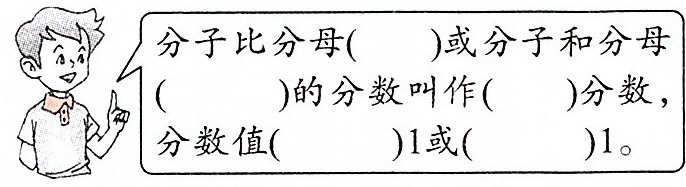 分子比分母(　　)或分子和分母
(　　　)的分数叫作(　　)分数，
分数值(　　　)1或(　　　)1。